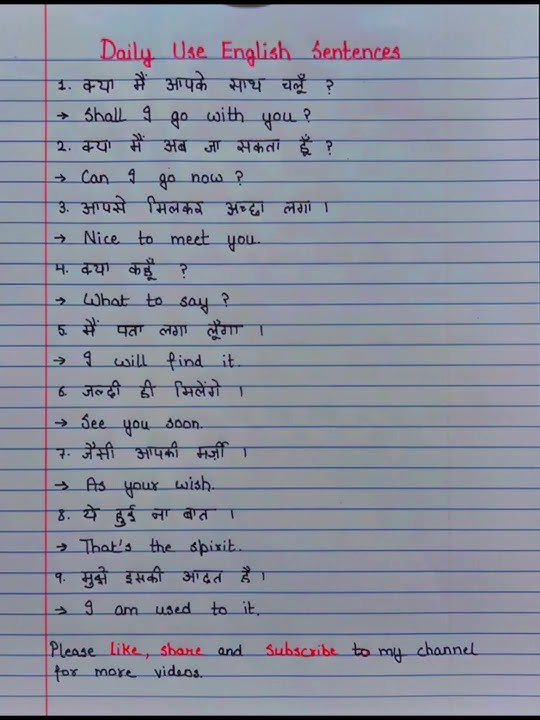 Daily Use English Sentences
1. क्या मैं आपके साथ चलूँ ?
→ Shall I go with you?
2. क्या मैं अब जा सकता हूँ ?
→ Can I go now?
3. आपसे मिलकर अच्छा लगा ।
→ Nice to meet you.
4. क्या कहूँ ?
→ What to say?
5. मैं पता लगा लूँगा ।
→ I will find it.
6. जल्दी ही मिलेंगे ।
→ See you soon.
7. जैसी आपकी मर्ज़ी ।
→ As your wish.
8. ये हुई ना बात ।
→ That's the spirit.
9. मुझे इसकी आदत है ।
→ I am used to it.
Please like, share and subscribe to my channel
for more videos.